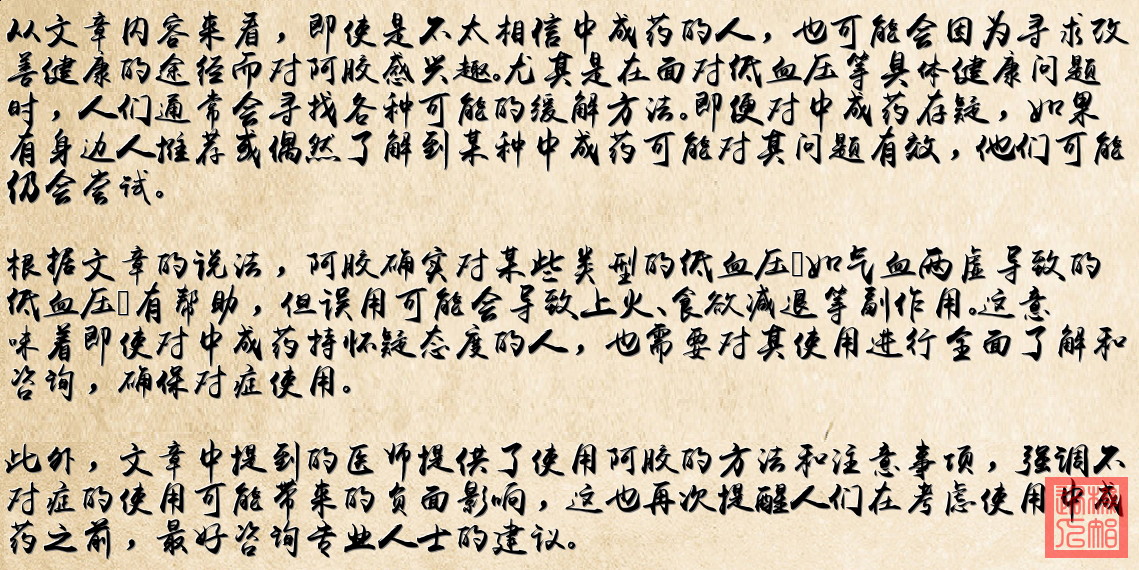 从文章内容来看，即使是不太相信中成药的人，也可能会因为寻求改
善健康的途径而对阿胶感兴趣。尤其是在面对低血压等具体健康问题
时，人们通常会寻找各种可能的缓解方法。即便对中成药存疑，如果
有身边人推荐或偶然了解到某种中成药可能对其问题有效，他们可能
仍会尝试。
根据文章的说法，阿胶确实对某些类型的低血压▯如气血两虚导致的
低血压▯有帮助，但误用可能会导致上火、食欲减退等副作用。这意
味着即使对中成药持怀疑态度的人，也需要对其使用进行全面了解和
咨询，确保对症使用。
此外，文章中提到的医师提供了使用阿胶的方法和注意事项，强调不
对症的使用可能带来的负面影响，这也再次提醒人们在考虑使用中成
药之前，最好咨询专业人士的建议。